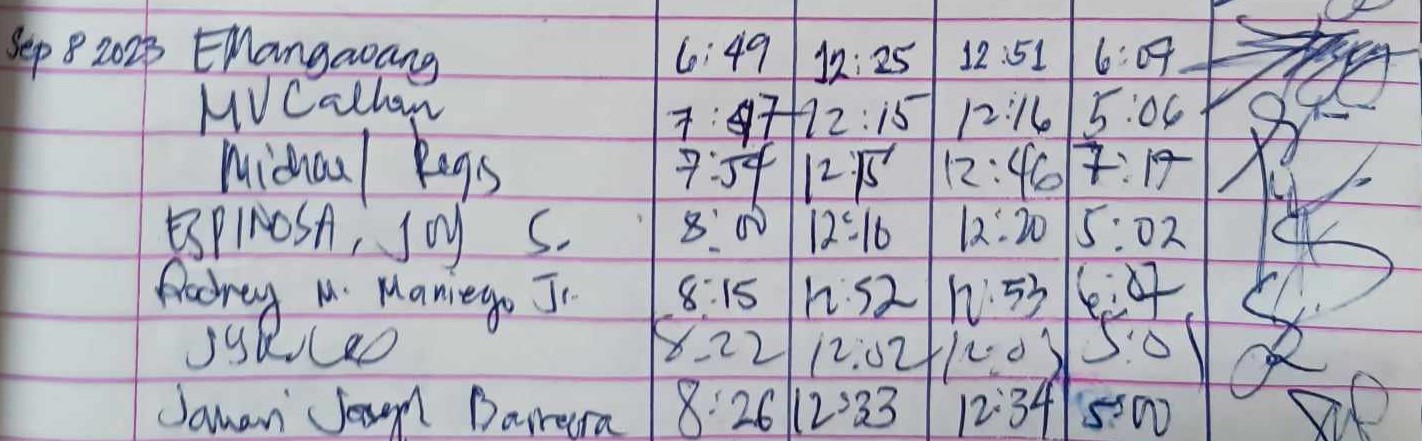 Sep 8 2023 EMangaoang 6:49 12:25 12:51 6:09
MV Calhan 7:47 12:15 12:16 5:06
Michael Regis 7:54 12:15 12:46 7:19
ESPINOSA, JOY S. 8:00 12:16 12:20 5:02
Rodney M. Maniego Jr. 8:15 12:52 12:53 6:07
8:22 12:02 12:03 5:01
Joseph Barrera 8:26 12:33 12:34 5:00